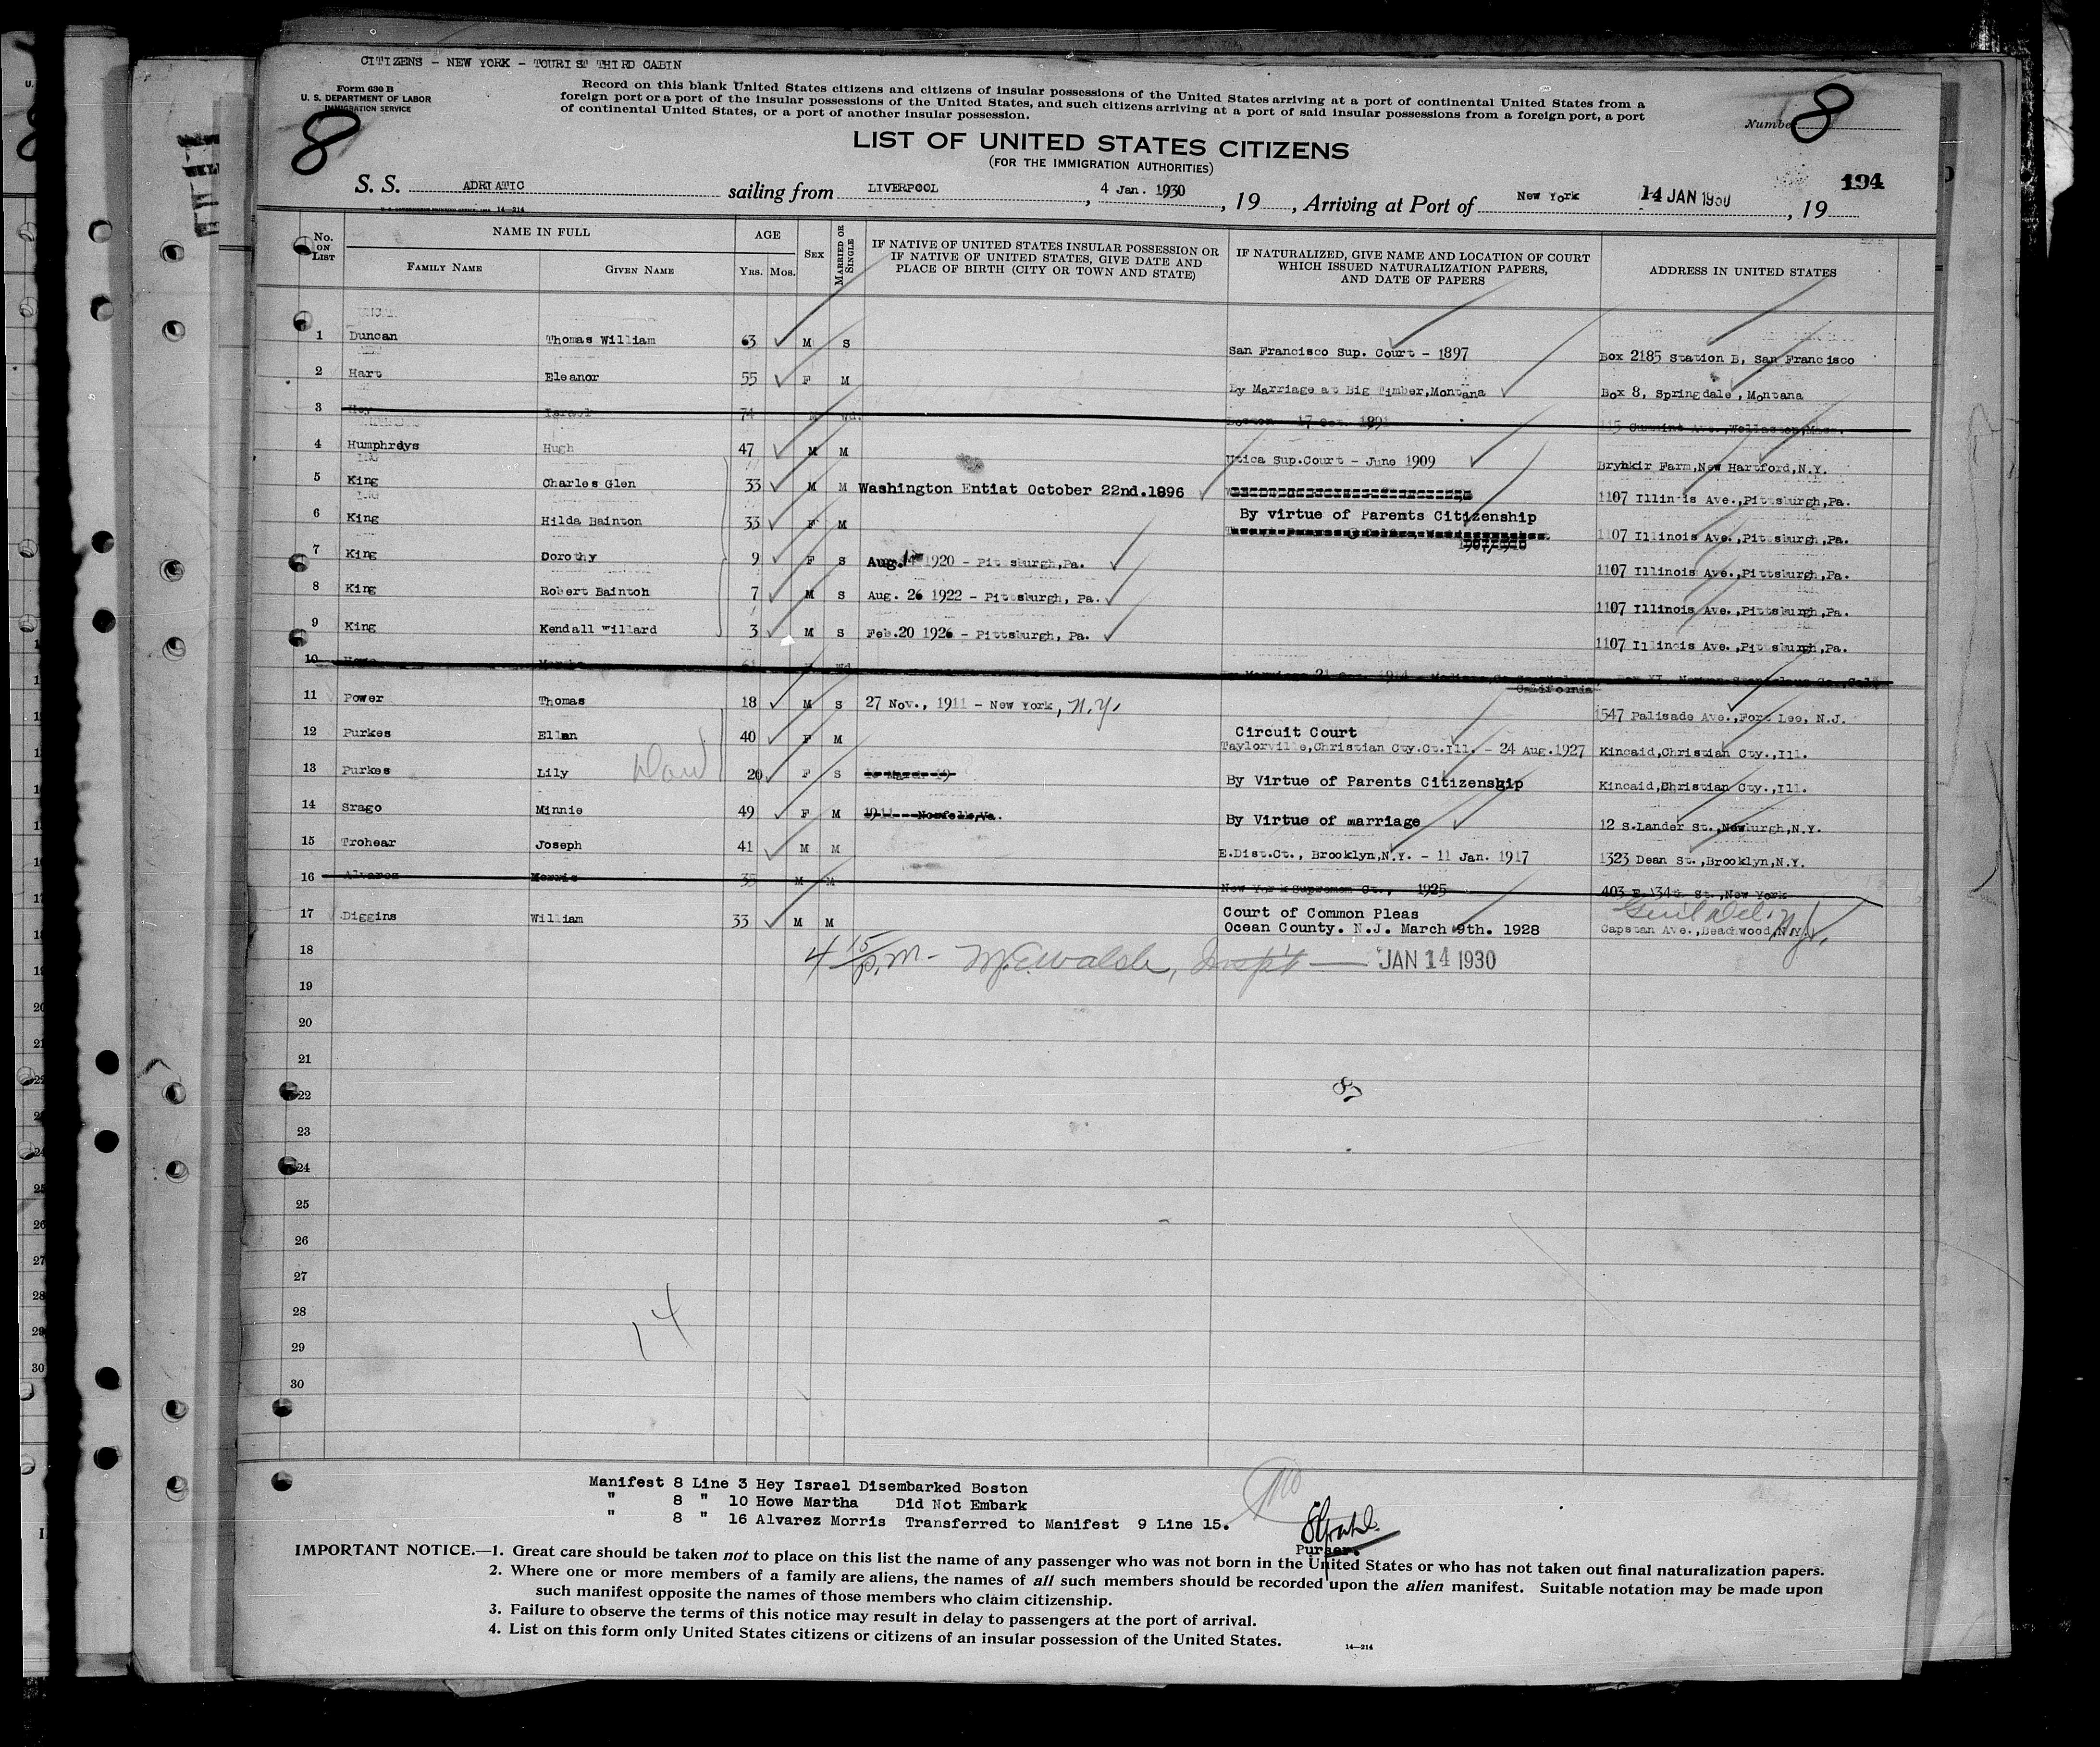 CITIZENS - NEW YORK - TOURIST THIRD CABIN
Form 630 B
U. S. DEPARTMENT OF LABOR
IMMIGRATION SERVICE
Record on this blank United States citizens and citizens of insular possessions of the United States arriving at a port of continental United States from a
foreign port or a port of the insular possessions of the United States, and such citizens arriving at a port of said insular possessions from a foreign port, a port
of continental United States, or a port of another insular possession.
8
Number 8
LIST OF UNITED STATES CITIZENS
(FOR THE IMMIGRATION AUTHORITIES)
194
S. S. ADRIATIC sailing from LIVERPOOL, 4 Jan. 1930, 19, Arriving at Port of New York 14 JAN 1930, 19
14-214
No. ON LIST NAME IN FULL AGE SEX MARRIED OR SINGLE IF NATIVE OF UNITED STATES INSULAR POSSESSION OR IF NATIVE OF UNITED STATES, GIVE DATE AND PLACE OF BIRTH (CITY OR TOWN AND STATE) IF NATURALIZED, GIVE NAME AND LOCATION OF COURT WHICH ISSUED NATURALIZATION PAPERS, AND DATE OF PAPERS ADDRESS IN UNITED STATES
FAMILY NAME GIVEN NAME YRS. MOS.
1 Duncan Thomas William 63 M S San Francisco Sup. Court - 1897 Box 2185 Station B, San Francisco
2 Hart Eleanor 55 F M By Marriage at Big Timber, Montana Box 8, Springdale, Montana
3 Hey Israel 74 M Wd. Boston 17 1891 Ave., Wollaston, Mass.
4 Humphreys Hugh 47 M M Utica Sup. Court - June 1909 Brynkir Farm, New Hartford, N.Y.
5 King Charles Glen 33 M M Washington Entiat October 22nd. 1896 1107 Illinois Ave., Pittsburgh, Pa.
6 King Hilda Bainton 33 F M By virtue of Parents Citizenship 1107 Illinois Ave., Pittsburgh, Pa.
7 King Dorothy 9 F S Aug. 1920 - Pittsburgh, Pa. 1107 Illinois Ave., Pittsburgh, Pa.
8 King Robert Bainton 7 M S Aug. 26 1922 - Pittsburgh, Pa. 1107 Illinois Ave., Pittsburgh, Pa.
9 King Kendall Willard 3 M S Feb. 20 1926 - Pittsburgh, Pa. 1107 Illinois Ave., Pittsburgh, Pa.
10 Howe Martha 61 Wd California
11 Power Thomas 18 M S 27 Nov., 1911 - New York, N.Y. 1547 Palisade Ave., Fort Lee, N.J.
12 Purkes Ellen 40 F M Circuit Court
Taylorville, Christian Cty. Ct. Ill. - 24 Aug. 1927 Kincaid, Christian Cty., Ill.
13 Purkes Lily 20 F S By Virtue of Parents Citizenship Kincaid, Christian Cty., Ill.
14 Srago Minnie 49 F M 1911 Norfolk, Va. By Virtue of marriage 12 S. Lander St., Newburgh, N.Y.
15 Trohear Joseph 41 M M E. Dist. Ct., Brooklyn, N.Y. - 11 Jan. 1917 1323 Dean St., Brooklyn, N.Y.
16 Alvarez Morris 35 M M New York Supreme Ct., 1925 403 E. 34th St., New York
17 Diggins William 33 M M Court of Common Pleas
Ocean County. N.J. March 9th. 1928 Capstan Ave., Beachwood, N.J.
18 4 15/p.m - M.E. Walsh, Insp't - JAN 14 1930
19
20
21
22
23
24
25
26
27
28
29
30
14
Manifest 8 Line 3 Hey Israel Disembarked Boston
" 8 " 10 Howe Martha Did Not Embark
" 8 " 16 Alvarez Morris Transferred to Manifest 9 Line 15.
Purser.
IMPORTANT NOTICE.—1. Great care should be taken not to place on this list the name of any passenger who was not born in the United States or who has not taken out final naturalization papers.
2. Where one or more members of a family are aliens, the names of all such members should be recorded upon the alien manifest. Suitable notation may be made upon
such manifest opposite the names of those members who claim citizenship.
3. Failure to observe the terms of this notice may result in delay to passengers at the port of arrival.
4. List on this form only United States citizens or citizens of an insular possession of the United States.
14—214